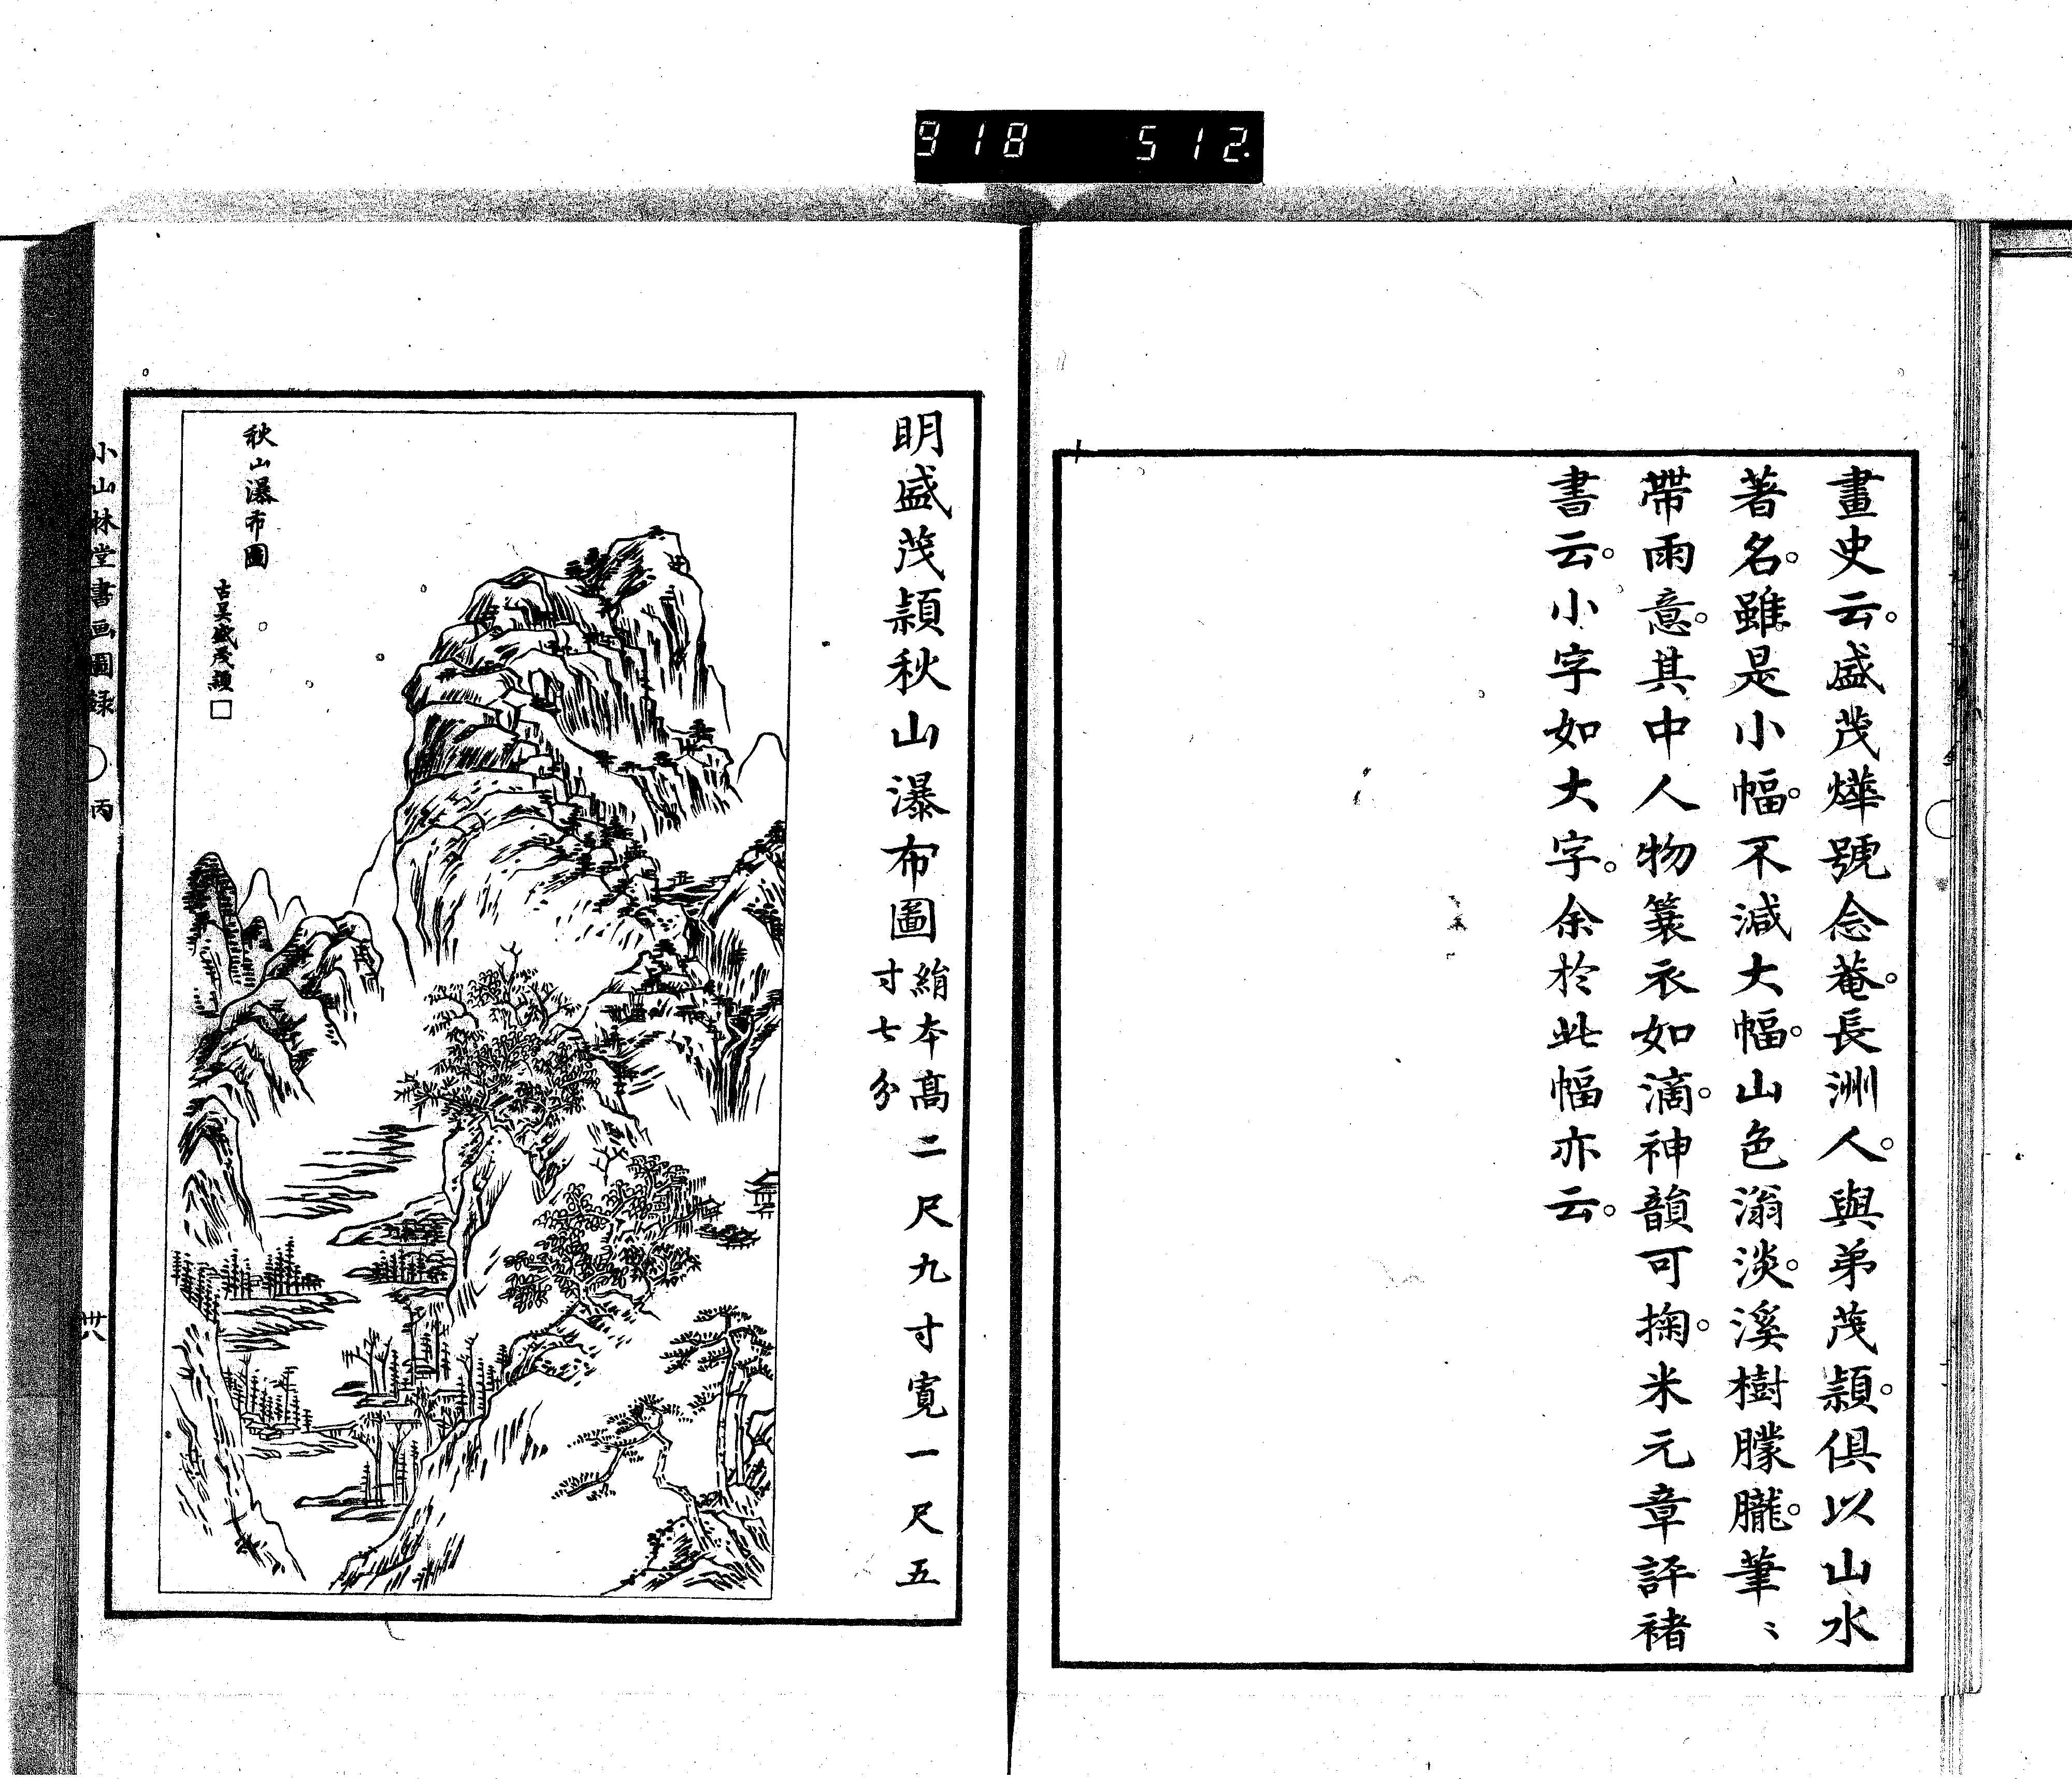 918 512.
畫史云。盛茂燁號念菴。長洲人。與弟茂穎。俱以山水
著名。雖是小幅。不減大幅。山色滃淡。溪樹朦朧。筆〻
帶雨意。其中人物簑衣如滴。神韻可掬。米元章評褚
書云。小字如大字。余於此幅亦云。
明盛茂穎秋山瀑布圖
絹本高二尺九寸寬一尺五
寸七分
秋山瀑布圖
古吳盛茂穎□
小山林堂書画圖録 丙
卅八